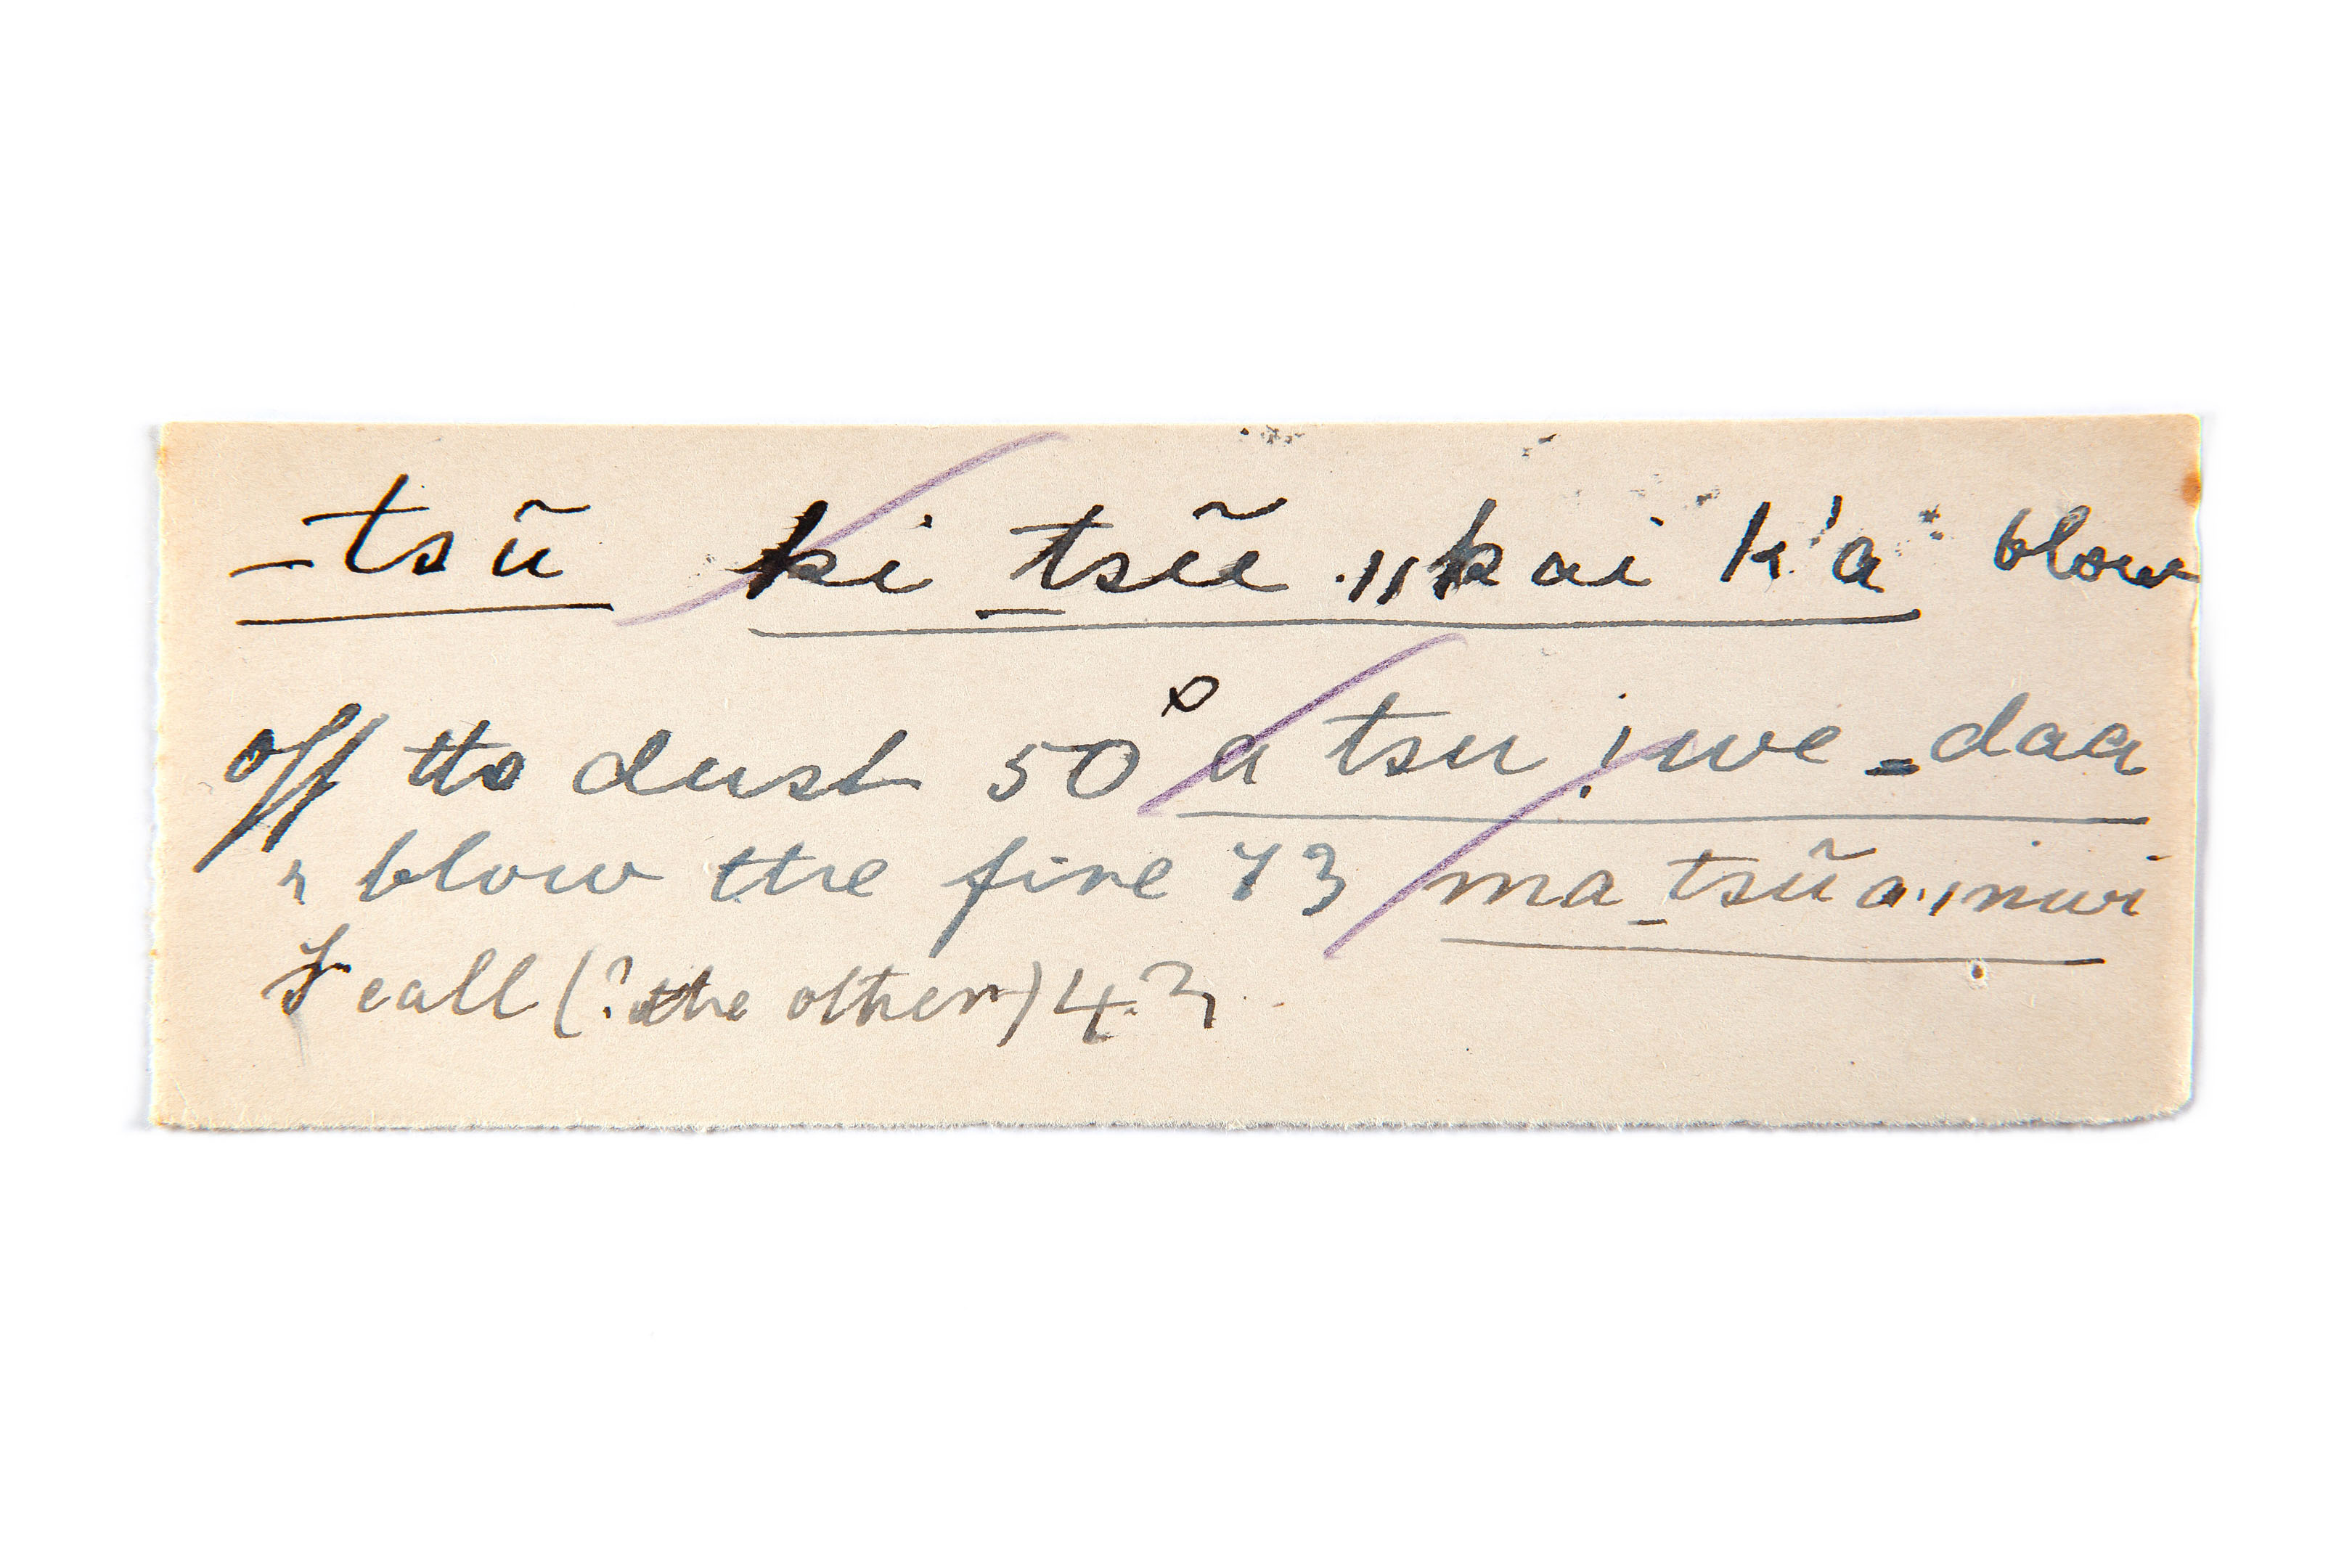 -tsũ ki tsũe .,,kai k'a blow
off the dust 50 a tsu ¡ we -daa
blow the fire 73 ma_tsũa.,nwi
I call (? the other) 43